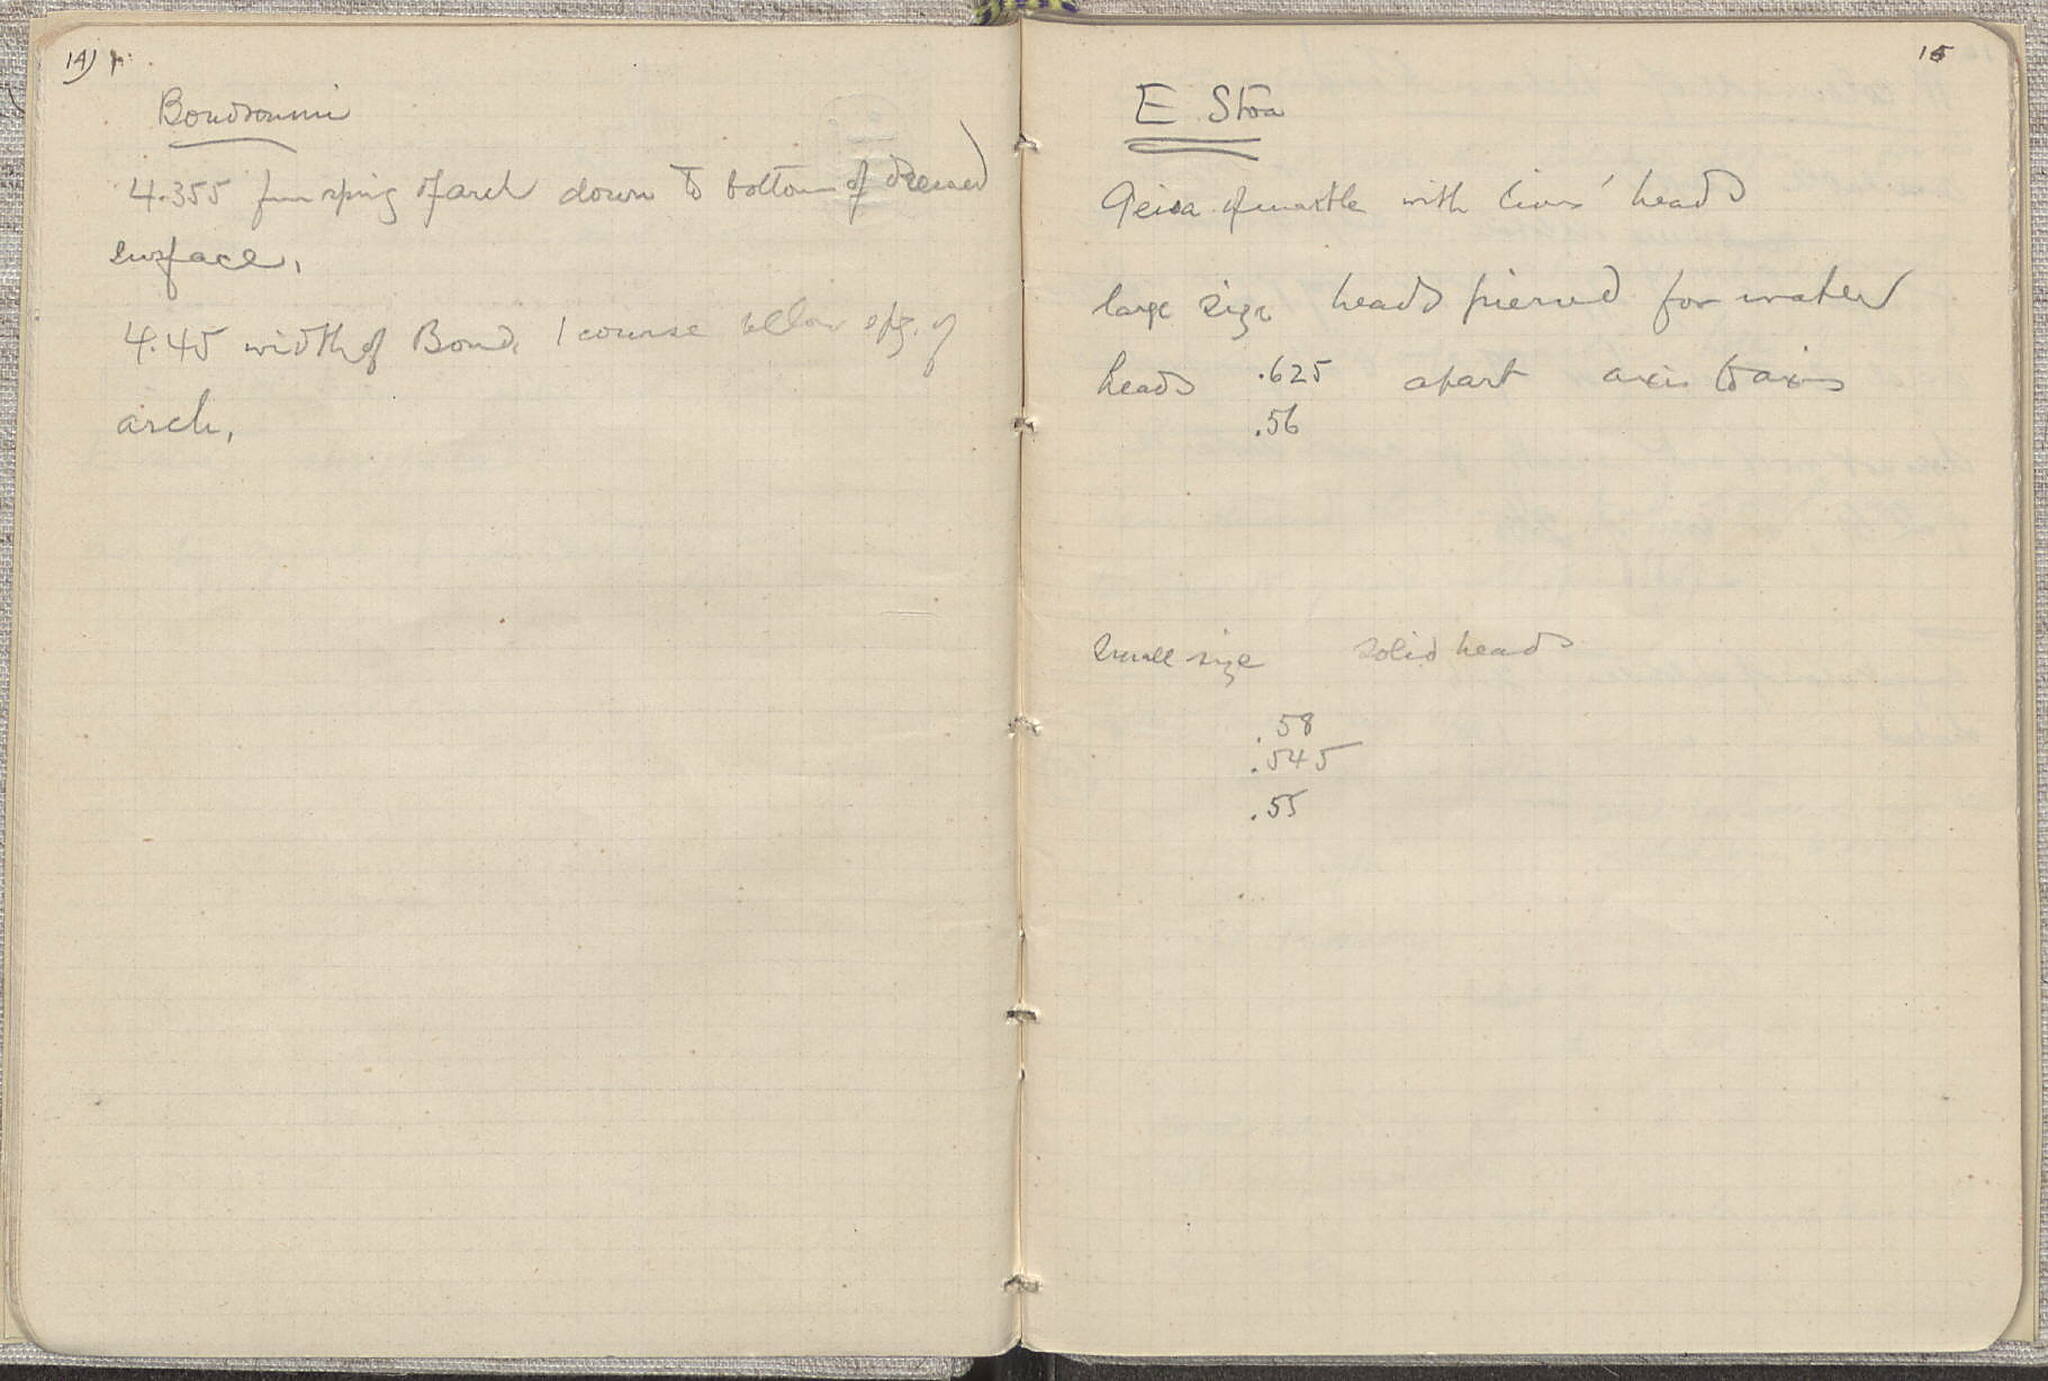 14)
Boudroumi
4.355 from spring of arch down to bottom of dressed
surface.
4.45 width of Boud. 1 course below spg. of
arch.
15
E. Stoa
Geisa of marble with lions' heads
large size heads pierced for water
heads .625 apart axis to axis
.56
Small size solid heads
.58
.545
.55